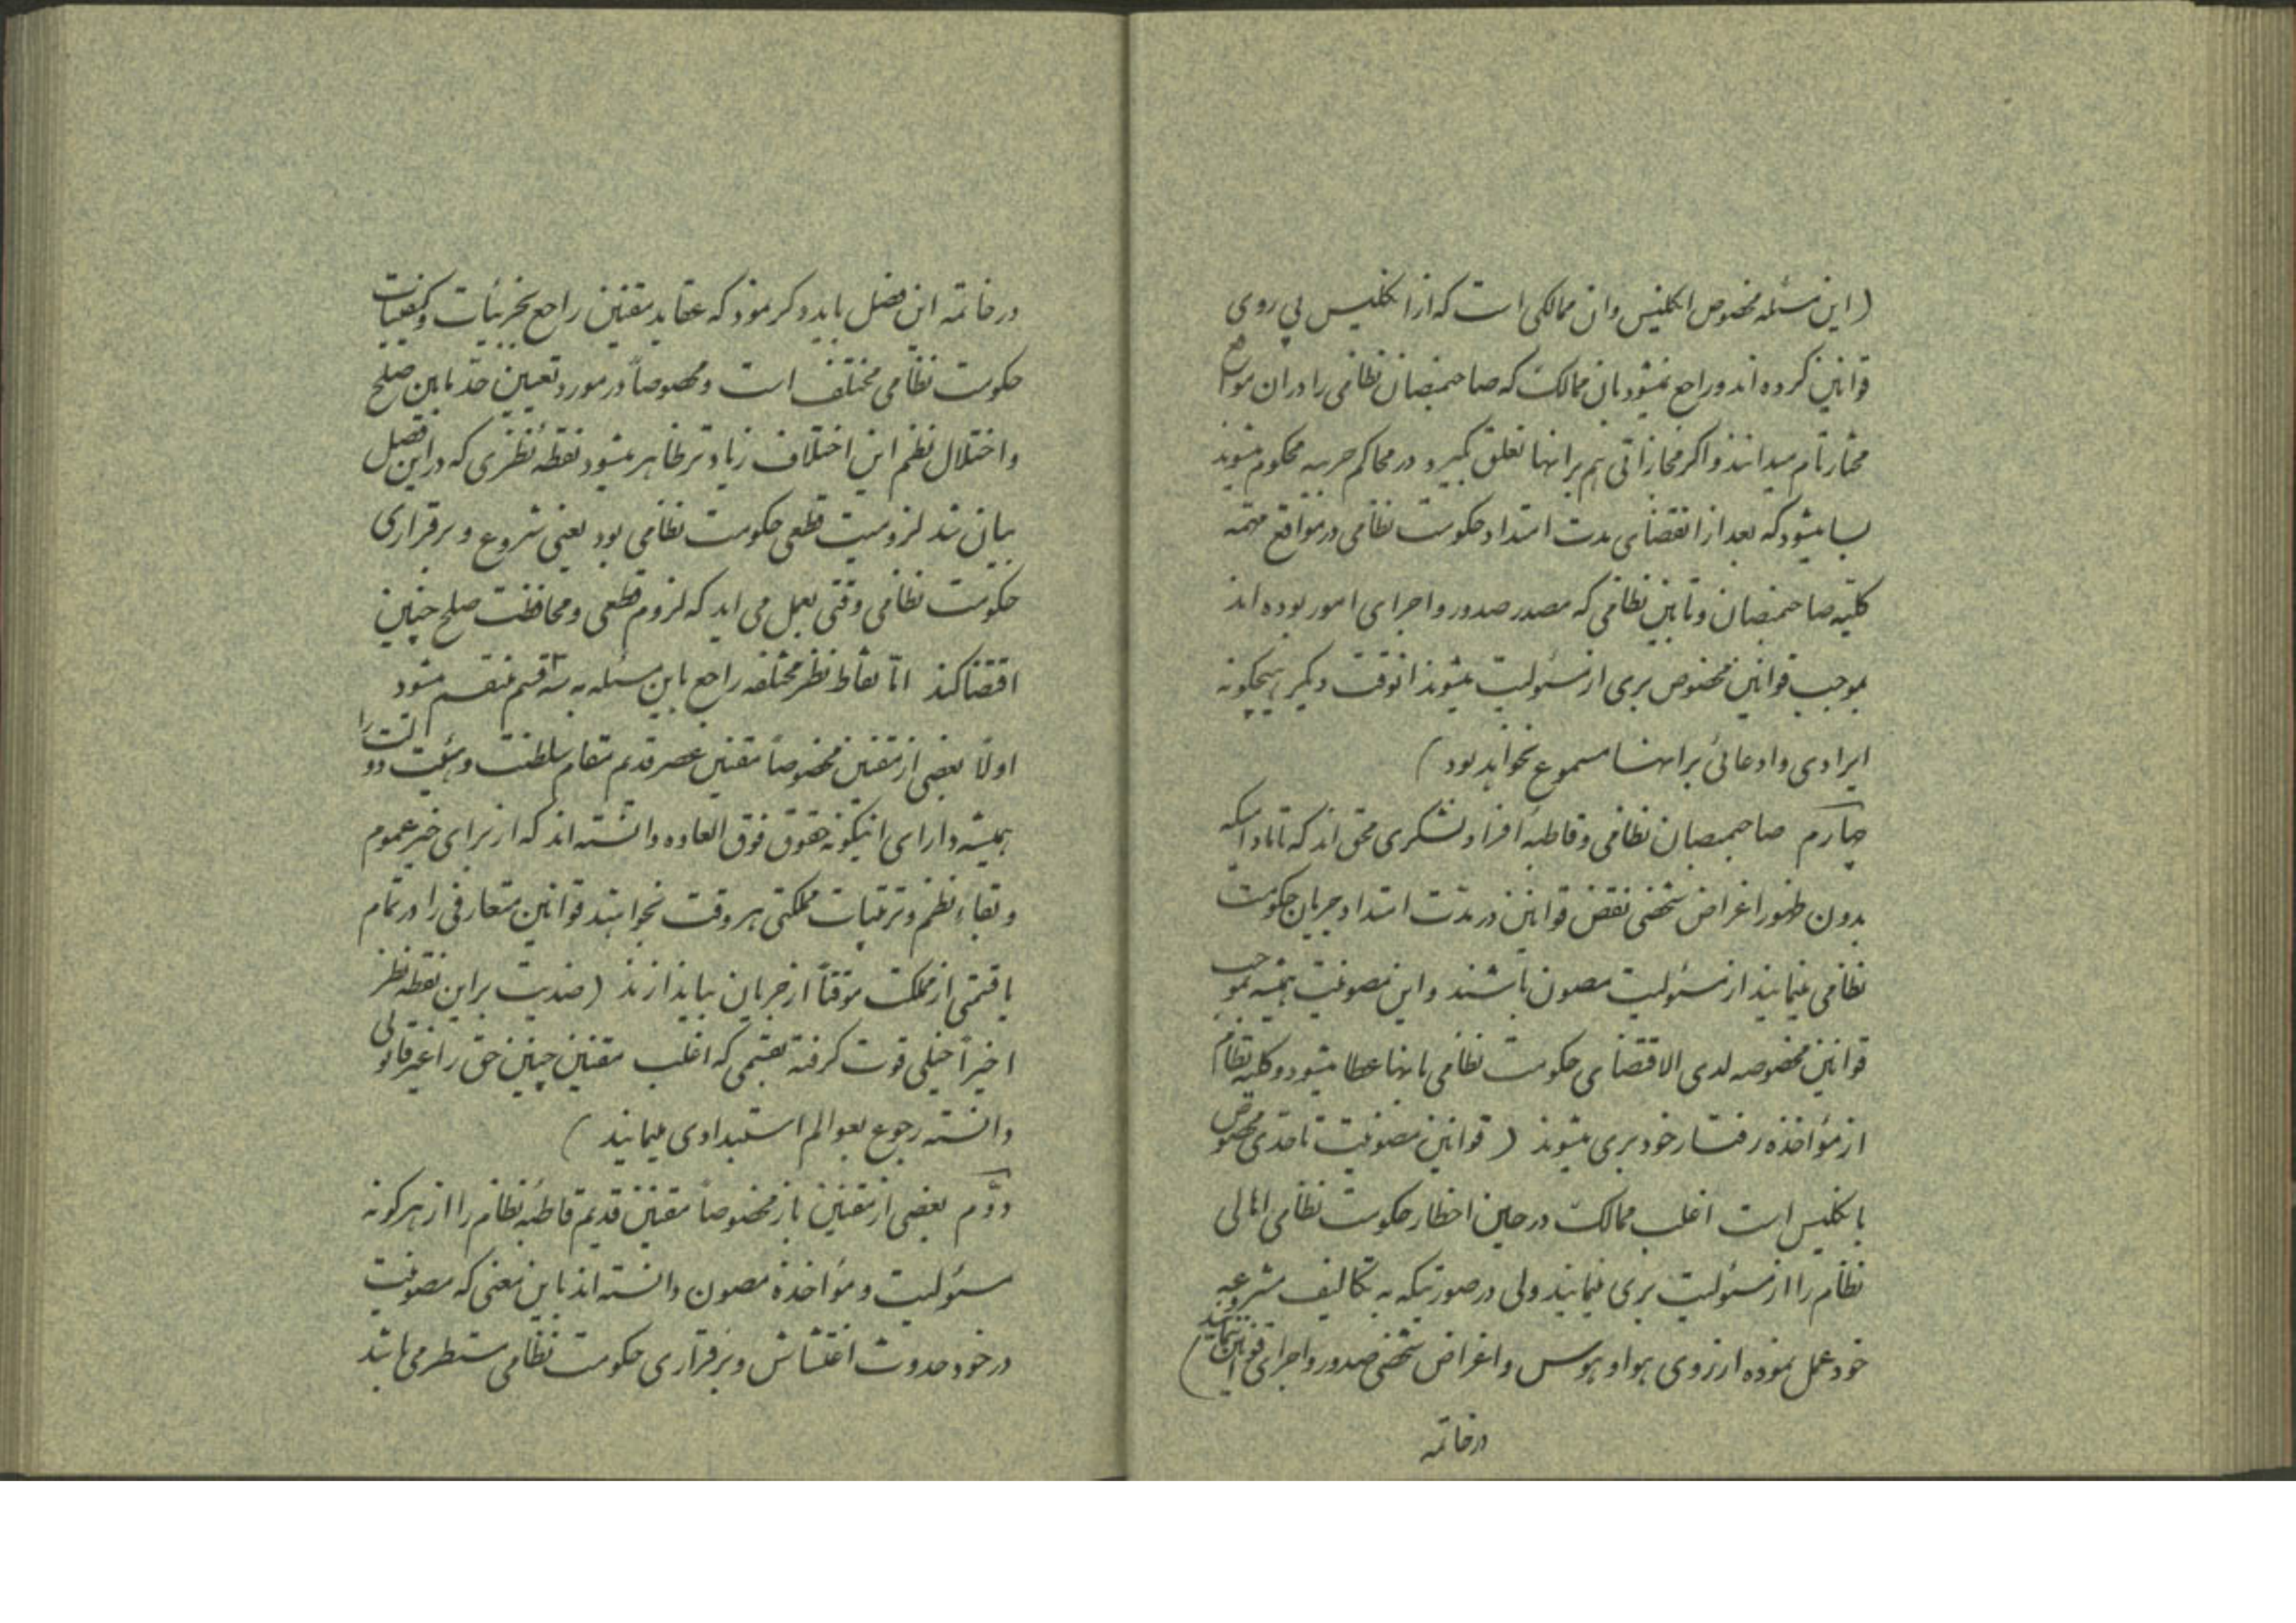 (این مسئله مخصوص انکلیس وان ممالکی است که از انکلیس پی روی
قوانین کرده اند و راجع نمیشود بان ممالک که صاحبمنصبان نظامی را در ان مواقع
مختار تام میدانند و اکر مجازاتی هم بر انها تعلق کیرد در محاکم حربیه محکوم میشوند
بسا میشود که بعد از انقضای مدت امتداد حکومت نظامی در مواقع مهمه
کلیه صاحبمنصبان و تابین نظامی که مصدر صدور و اجرای امور بوده اند
بموجب قوانین مخصوص بری از مسئولیت میشوند انوقت دیکر هیچکونه
ایرادی و ادعائی بر انها مسموع نخواهد بود)
چهارم صاحبمنصبان نظامی و قاطبه افراد لشکری محق اند که تا مادامیکه
بدون ظهور اغراض شخصی نقض قوانین در مدت امتداد جریان حکومت
نظامی مینمایند از مسئولیت مصون باشند و این مصونیت همیشه بموجب
قوانین مخصوصه لدی الاقتضای حکومت نظامی بانها عطا میشود و کلیه نظام
از مؤاخذه رفتار خود بری میشوند (قوانین مصونیت تا حدی مخصوص
بانکلیس است اغلب ممالک در حین اخطار حکومت نظامی اهالی
نظام را از مسئولیت بری مینمایند ولی در صورتیکه به تکالیف مشروعه
خود عمل نموده از روی هوا و هوس و اغراض شخصی صدور و اجرای قوانین ننمایند)
در خاتمه
در خاتمه این فصل باید ذکر نمود که عقاید مقننین راجع بجزئیات و کیفیات
حکومت نظامی مختلف است و مخصوصاً در مورد تعیین حد مابین صلح
و اختلال نظم این اختلاف زیادتر ظاهر میشود نقطه نظری که در این فصل
بیان شد لزومیت قطعی حکومت نظامی بود یعنی شروع و برقراری
حکومت نظامی وقتی بعمل می اید که لزوم قطعی و محافظت صلح چنین
اقتضا کند امّا نقاط نظر مختلفه راجع باین مسئله به سه قسم منقسم میشود
اولاً بعضی از مقننین مخصوصاً مقننین عصر قدیم مقام سلطنت و هیئت دولت را
همیشه دارای اینکونه حقوق فوق العاده دانسته اند که از برای خیر عموم
و بقاء نظم و ترتیبات مملکتی هر وقت بخواهند قوانین متعارفی را در تمام
یا قسمتی از مملکت موقتاً از جریان بیاندازند (ضدیت بر این نقطه نظر
اخیراً خیلی قوت کرفته بقسمی که اغلب مقننین چنین حق را غیر قانونی
دانسته رجوع بعوالم استبدادی مینمایند)
دوّم بعضی از مقننین باز مخصوصاً مقننین قدیم قاطبه نظام را از هر کونه
مسئولیت و مؤاخذه مصون دانسته اند باین معنی که مصونیت
در خود حدوث اغتشاش و برقراری حکومت نظامی مستطر می باشد